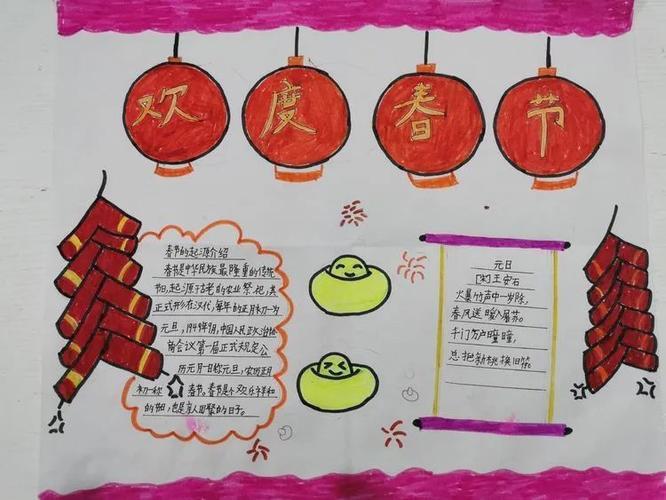 欢度春节
春节的起源介绍
春节是中华民族最隆重的传统
节日,起源于古老的农业祭祀,其
正式形成在汉代,每年的正月初一
元旦,1949年9月,中国人民政治协
商会议第一届正式规定公
历元月一日称元旦,农历正月
初一称春节。春节是个欢乐祥和
的节日,也是亲人团聚的日子。
元日
[宋]王安石
火暴竹声中一岁除,
春风送暖入屠苏。
千门万户曈曈,
总把新桃换旧符。